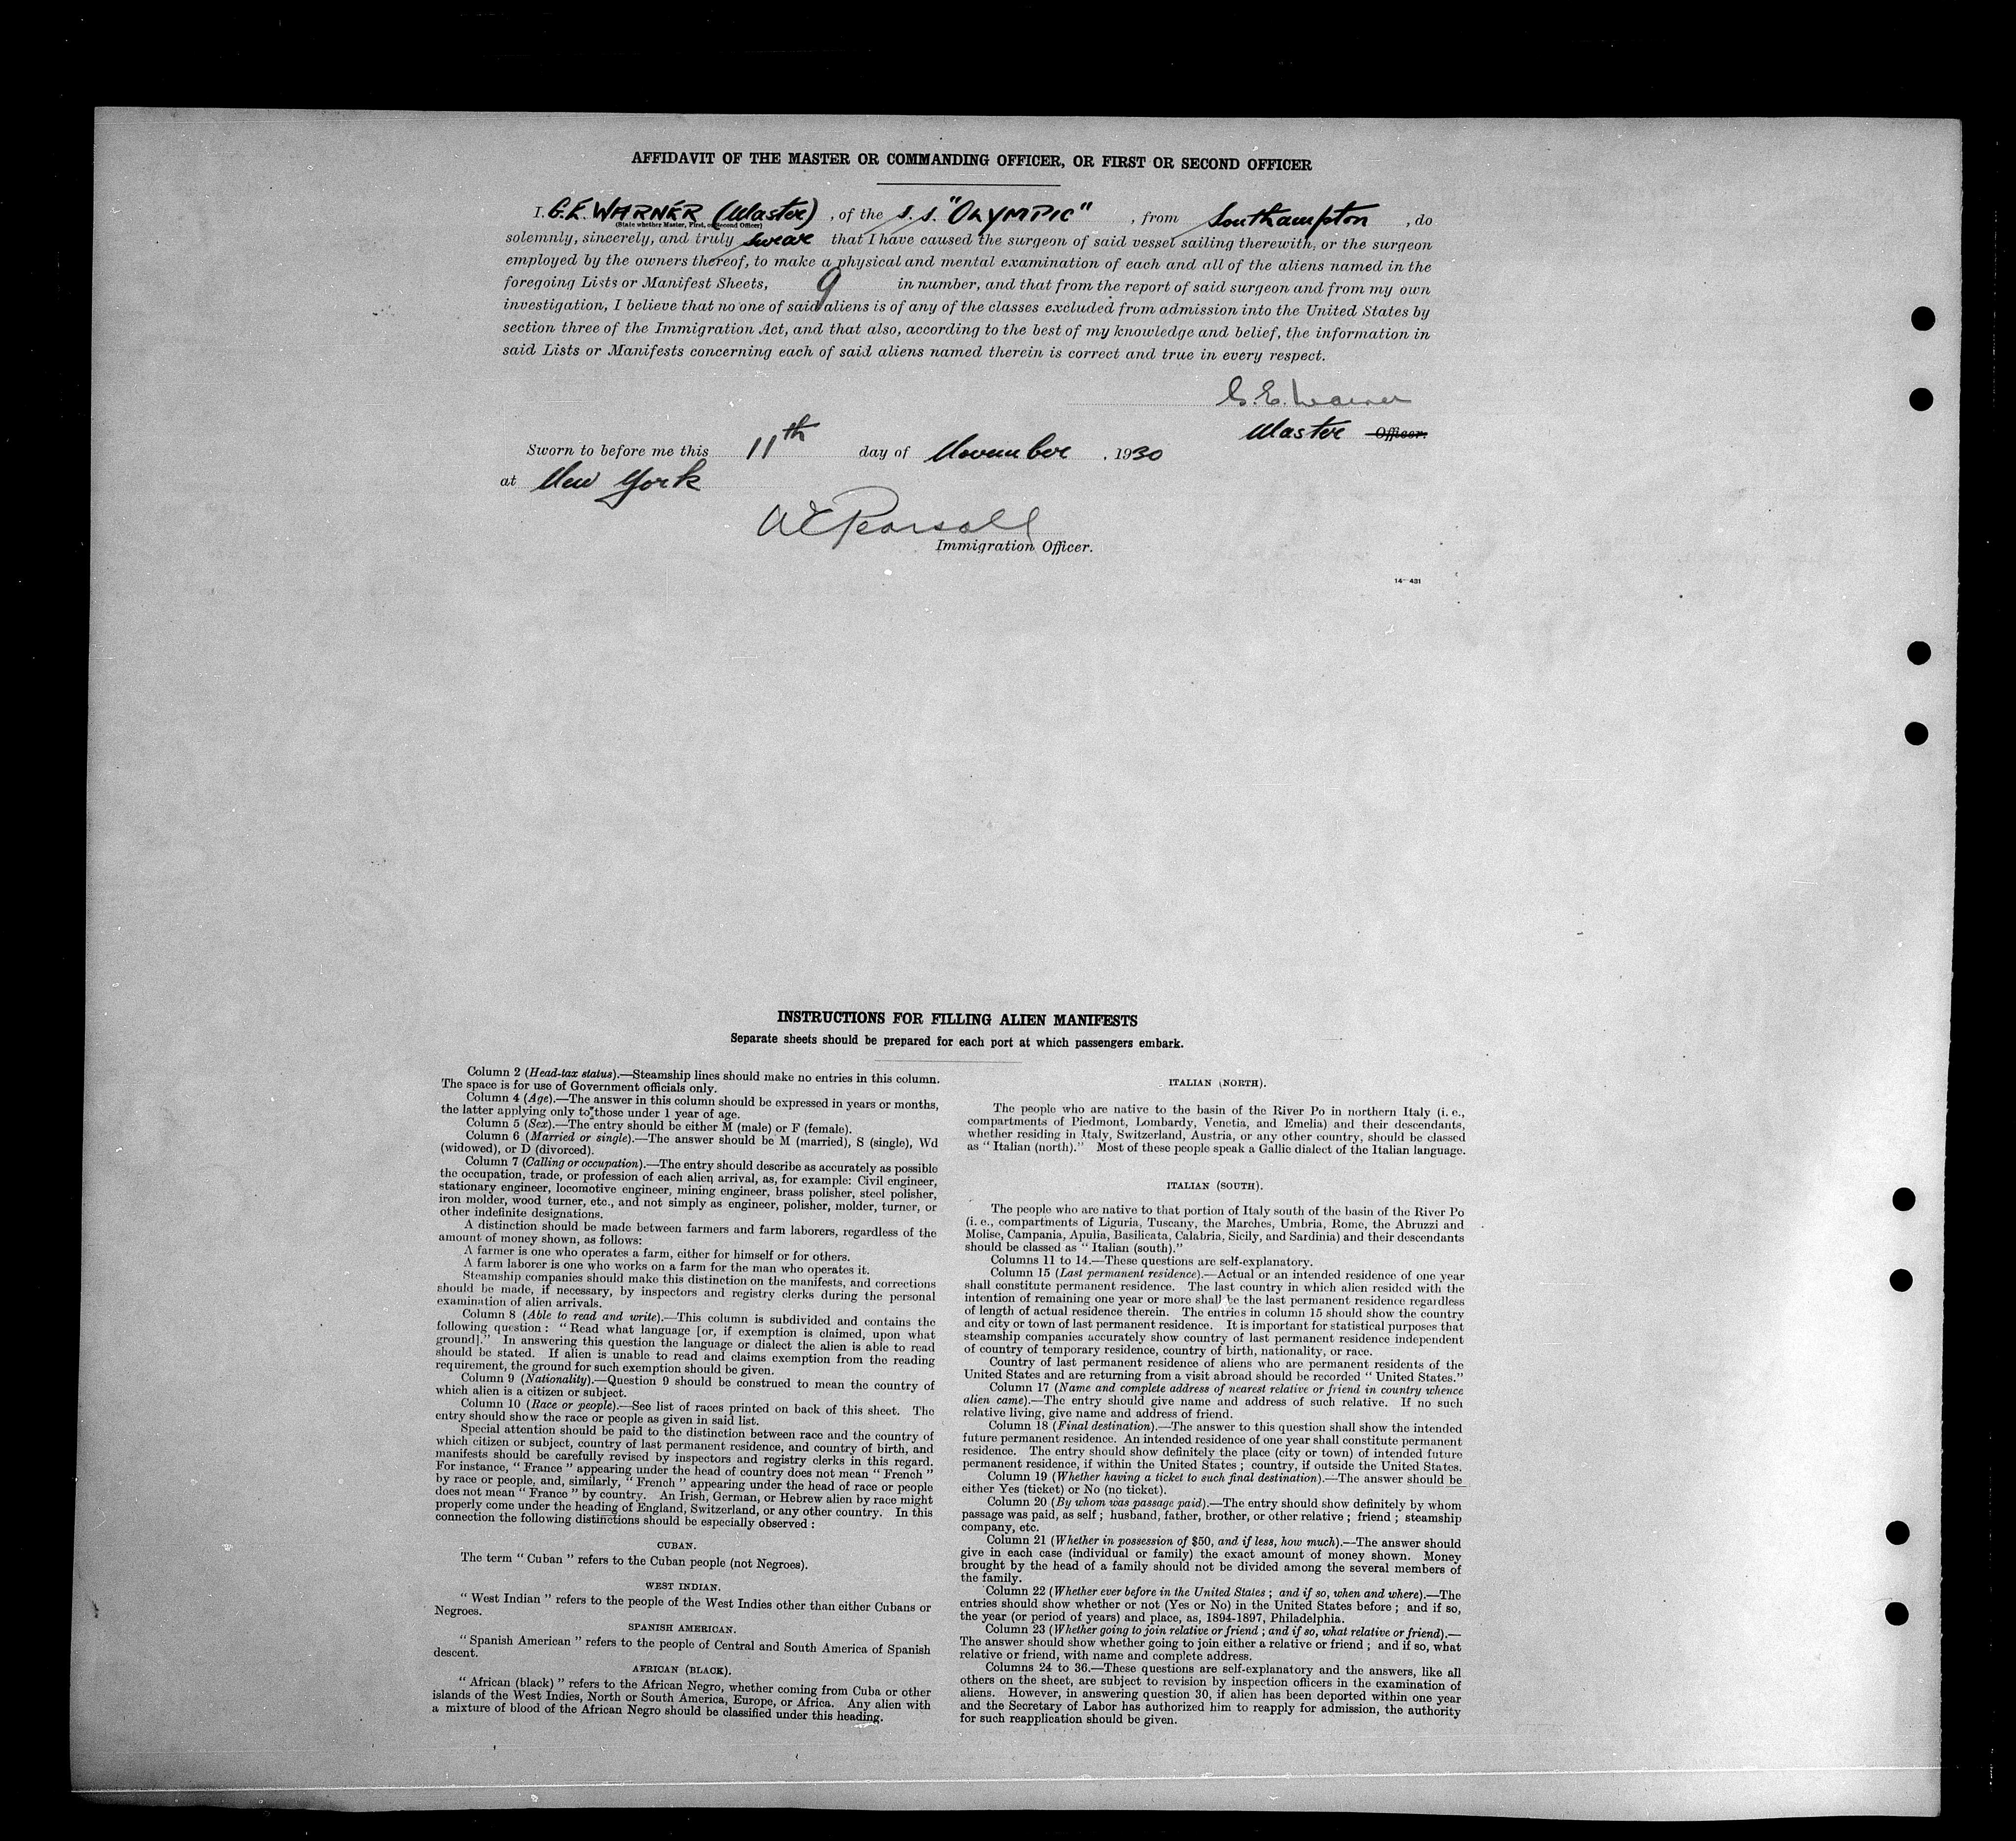 AFFIDAVIT OF THE MASTER OR COMMANDING OFFICER, OR FIRST OR SECOND OFFICER
I, G.E. WARNER (Master), of the s.s. "OLYMPIC", from Southampton, do
(State whether Master, First, or Second Officer)
solemnly, sincerely, and truly swear that I have caused the surgeon of said vessel sailing therewith, or the surgeon
employed by the owners thereof, to make a physical and mental examination of each and all of the aliens named in the
foregoing Lists or Manifest Sheets, 9 in number, and that from the report of said surgeon and from my own
investigation, I believe that no one of said aliens is of any of the classes excluded from admission into the United States by
section three of the Immigration Act, and that also, according to the best of my knowledge and belief, the information in
said Lists or Manifests concerning each of said aliens named therein is correct and true in every respect.
G.E. Warner
Master Officer.
Sworn to before me this 11th day of November, 1930
at New York
A E Pearsall
Immigration Officer.
14—431
INSTRUCTIONS FOR FILLING ALIEN MANIFESTS
Separate sheets should be prepared for each port at which passengers embark.
Column 2 (Head-tax status).—Steamship lines should make no entries in this column.
The space is for use of Government officials only.
Column 4 (Age).—The answer in this column should be expressed in years or months,
the latter applying only to those under 1 year of age.
Column 5 (Sex).—The entry should be either M (male) or F (female).
Column 6 (Married or single).—The answer should be M (married), S (single), Wd
(widowed), or D (divorced).
Column 7 (Calling or occupation).—The entry should describe as accurately as possible
the occupation, trade, or profession of each alien arrival, as, for example: Civil engineer,
stationary engineer, locomotive engineer, mining engineer, brass polisher, steel polisher,
iron molder, wood turner, etc., and not simply as engineer, polisher, molder, turner, or
other indefinite designations.
A distinction should be made between farmers and farm laborers, regardless of the
amount of money shown, as follows:
A farmer is one who operates a farm, either for himself or for others.
A farm laborer is one who works on a farm for the man who operates it.
Steamship companies should make this distinction on the manifests, and corrections
should be made, if necessary, by inspectors and registry clerks during the personal
examination of alien arrivals.
Column 8 (Able to read and write).—This column is subdivided and contains the
following question: "Read what language [or, if exemption is claimed, upon what
ground]." In answering this question the language or dialect the alien is able to read
should be stated. If alien is unable to read and claims exemption from the reading
requirement, the ground for such exemption should be given.
Column 9 (Nationality).—Question 9 should be construed to mean the country of
which alien is a citizen or subject.
Column 10 (Race or people).—See list of races printed on back of this sheet. The
entry should show the race or people as given in said list.
Special attention should be paid to the distinction between race and the country of
which citizen or subject, country of last permanent residence, and country of birth, and
manifests should be carefully revised by inspectors and registry clerks in this regard.
For instance, "France" appearing under the head of country does not mean "French"
by race or people, and, similarly, "French" appearing under the head of race or people
does not mean "France" by country. An Irish, German, or Hebrew alien by race might
properly come under the heading of England, Switzerland, or any other country. In this
connection the following distinctions should be especially observed:
CUBAN.
The term "Cuban" refers to the Cuban people (not Negroes).
WEST INDIAN.
"West Indian" refers to the people of the West Indies other than either Cubans or
Negroes.
SPANISH AMERICAN.
"Spanish American" refers to the people of Central and South America of Spanish
descent.
AFRICAN (BLACK).
"African (black)" refers to the African Negro, whether coming from Cuba or other
islands of the West Indies, North or South America, Europe, or Africa. Any alien with
a mixture of blood of the African Negro should be classified under this heading.
ITALIAN (NORTH).
The people who are native to the basin of the River Po in northern Italy (i. e.,
compartments of Piedmont, Lombardy, Venetia, and Emelia) and their descendants,
whether residing in Italy, Switzerland, Austria, or any other country, should be classed
as "Italian (north)." Most of these people speak a Gallic dialect of the Italian language.
ITALIAN (SOUTH).
The people who are native to that portion of Italy south of the basin of the River Po
(i. e., compartments of Liguria, Tuscany, the Marches, Umbria, Rome, the Abruzzi and
Molise, Campania, Apulia, Basilicata, Calabria, Sicily, and Sardinia) and their descendants
should be classed as "Italian (south)."
Columns 11 to 14.—These questions are self-explanatory.
Column 15 (Last permanent residence).—Actual or an intended residence of one year
shall constitute permanent residence. The last country in which alien resided with the
intention of remaining one year or more shall be the last permanent residence regardless
of length of actual residence therein. The entries in column 15 should show the country
and city or town of last permanent residence. It is important for statistical purposes that
steamship companies accurately show country of last permanent residence independent
of country of temporary residence, country of birth, nationality, or race.
Country of last permanent residence of aliens who are permanent residents of the
United States and are returning from a visit abroad should be recorded "United States."
Column 17 (Name and complete address of nearest relative or friend in country whence
alien came).—The entry should give name and address of such relative. If no such
relative living, give name and address of friend.
Column 18 (Final destination).—The answer to this question shall show the intended
future permanent residence. An intended residence of one year shall constitute permanent
residence. The entry should show definitely the place (city or town) of intended future
permanent residence, if within the United States; country, if outside the United States.
Column 19 (Whether having a ticket to such final destination).—The answer should be
either Yes (ticket) or No (no ticket).
Column 20 (By whom was passage paid).—The entry should show definitely by whom
passage was paid, as self; husband, father, brother, or other relative; friend; steamship
company, etc.
Column 21 (Whether in possession of $50, and if less, how much).—The answer should
give in each case (individual or family) the exact amount of money shown. Money
brought by the head of a family should not be divided among the several members of
the family.
Column 22 (Whether ever before in the United States; and if so, when and where).—The
entries should show whether or not (Yes or No) in the United States before; and if so,
the year (or period of years) and place, as, 1894-1897, Philadelphia.
Column 23 (Whether going to join relative or friend; and if so, what relative or friend).—
The answer should show whether going to join either a relative or friend; and if so, what
relative or friend, with name and complete address.
Columns 24 to 36.—These questions are self-explanatory and the answers, like all
others on the sheet, are subject to revision by inspection officers in the examination of
aliens. However, in answering question 30, if alien has been deported within one year
and the Secretary of Labor has authorized him to reapply for admission, the authority
for such reapplication should be given.